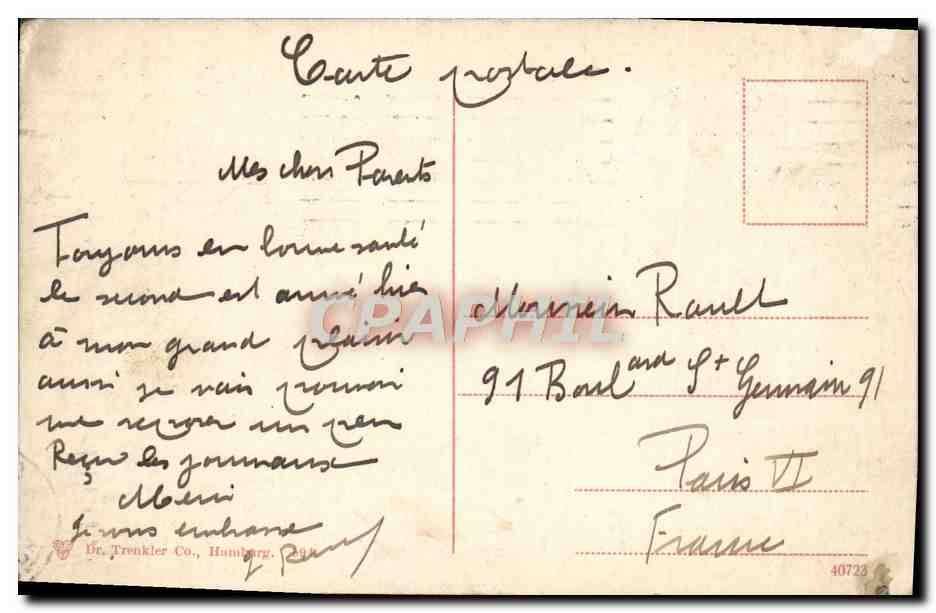 Carte postale.
Mes chers Parents
Toujours en bonne santé
le second est arrivé hier
à mon grand plaisir
aussi je vais pouvoir
me reposer un peu
Reçu les journaux
Merci
Je vous embrasse
Monsieur Rault
91 Boulard St Germain 91
Paris VI
France
CPAPHIL
Dr. Trenkler Co., Hamburg.
40723